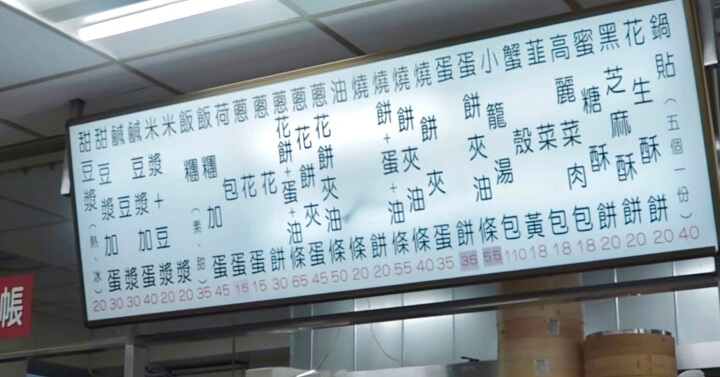 甜豆漿（熱、冰）20
甜豆漿加蛋 30
鹹豆漿 30
鹹豆漿加蛋 40
米漿 20
米漿+豆漿 20
飯糰（素、甜）35
飯糰加蛋 45
荷包蛋 15
蔥花蛋 15
蔥花餅 30
蔥花餅+蛋+油條 65
蔥花餅夾蛋 45
蔥花餅夾油條 50
油條 20
燒餅 20
燒餅+蛋+油條 55
燒餅夾油條 40
燒餅夾蛋 35
蛋餅 35
蛋餅夾油條 55
小籠湯包 110
蟹殼黃 18
韮菜包 18
高麗菜肉包 18
蜜糖酥餅 20
黑芝麻酥餅 20
花生酥餅 20
鍋貼（五個一份）40
帳